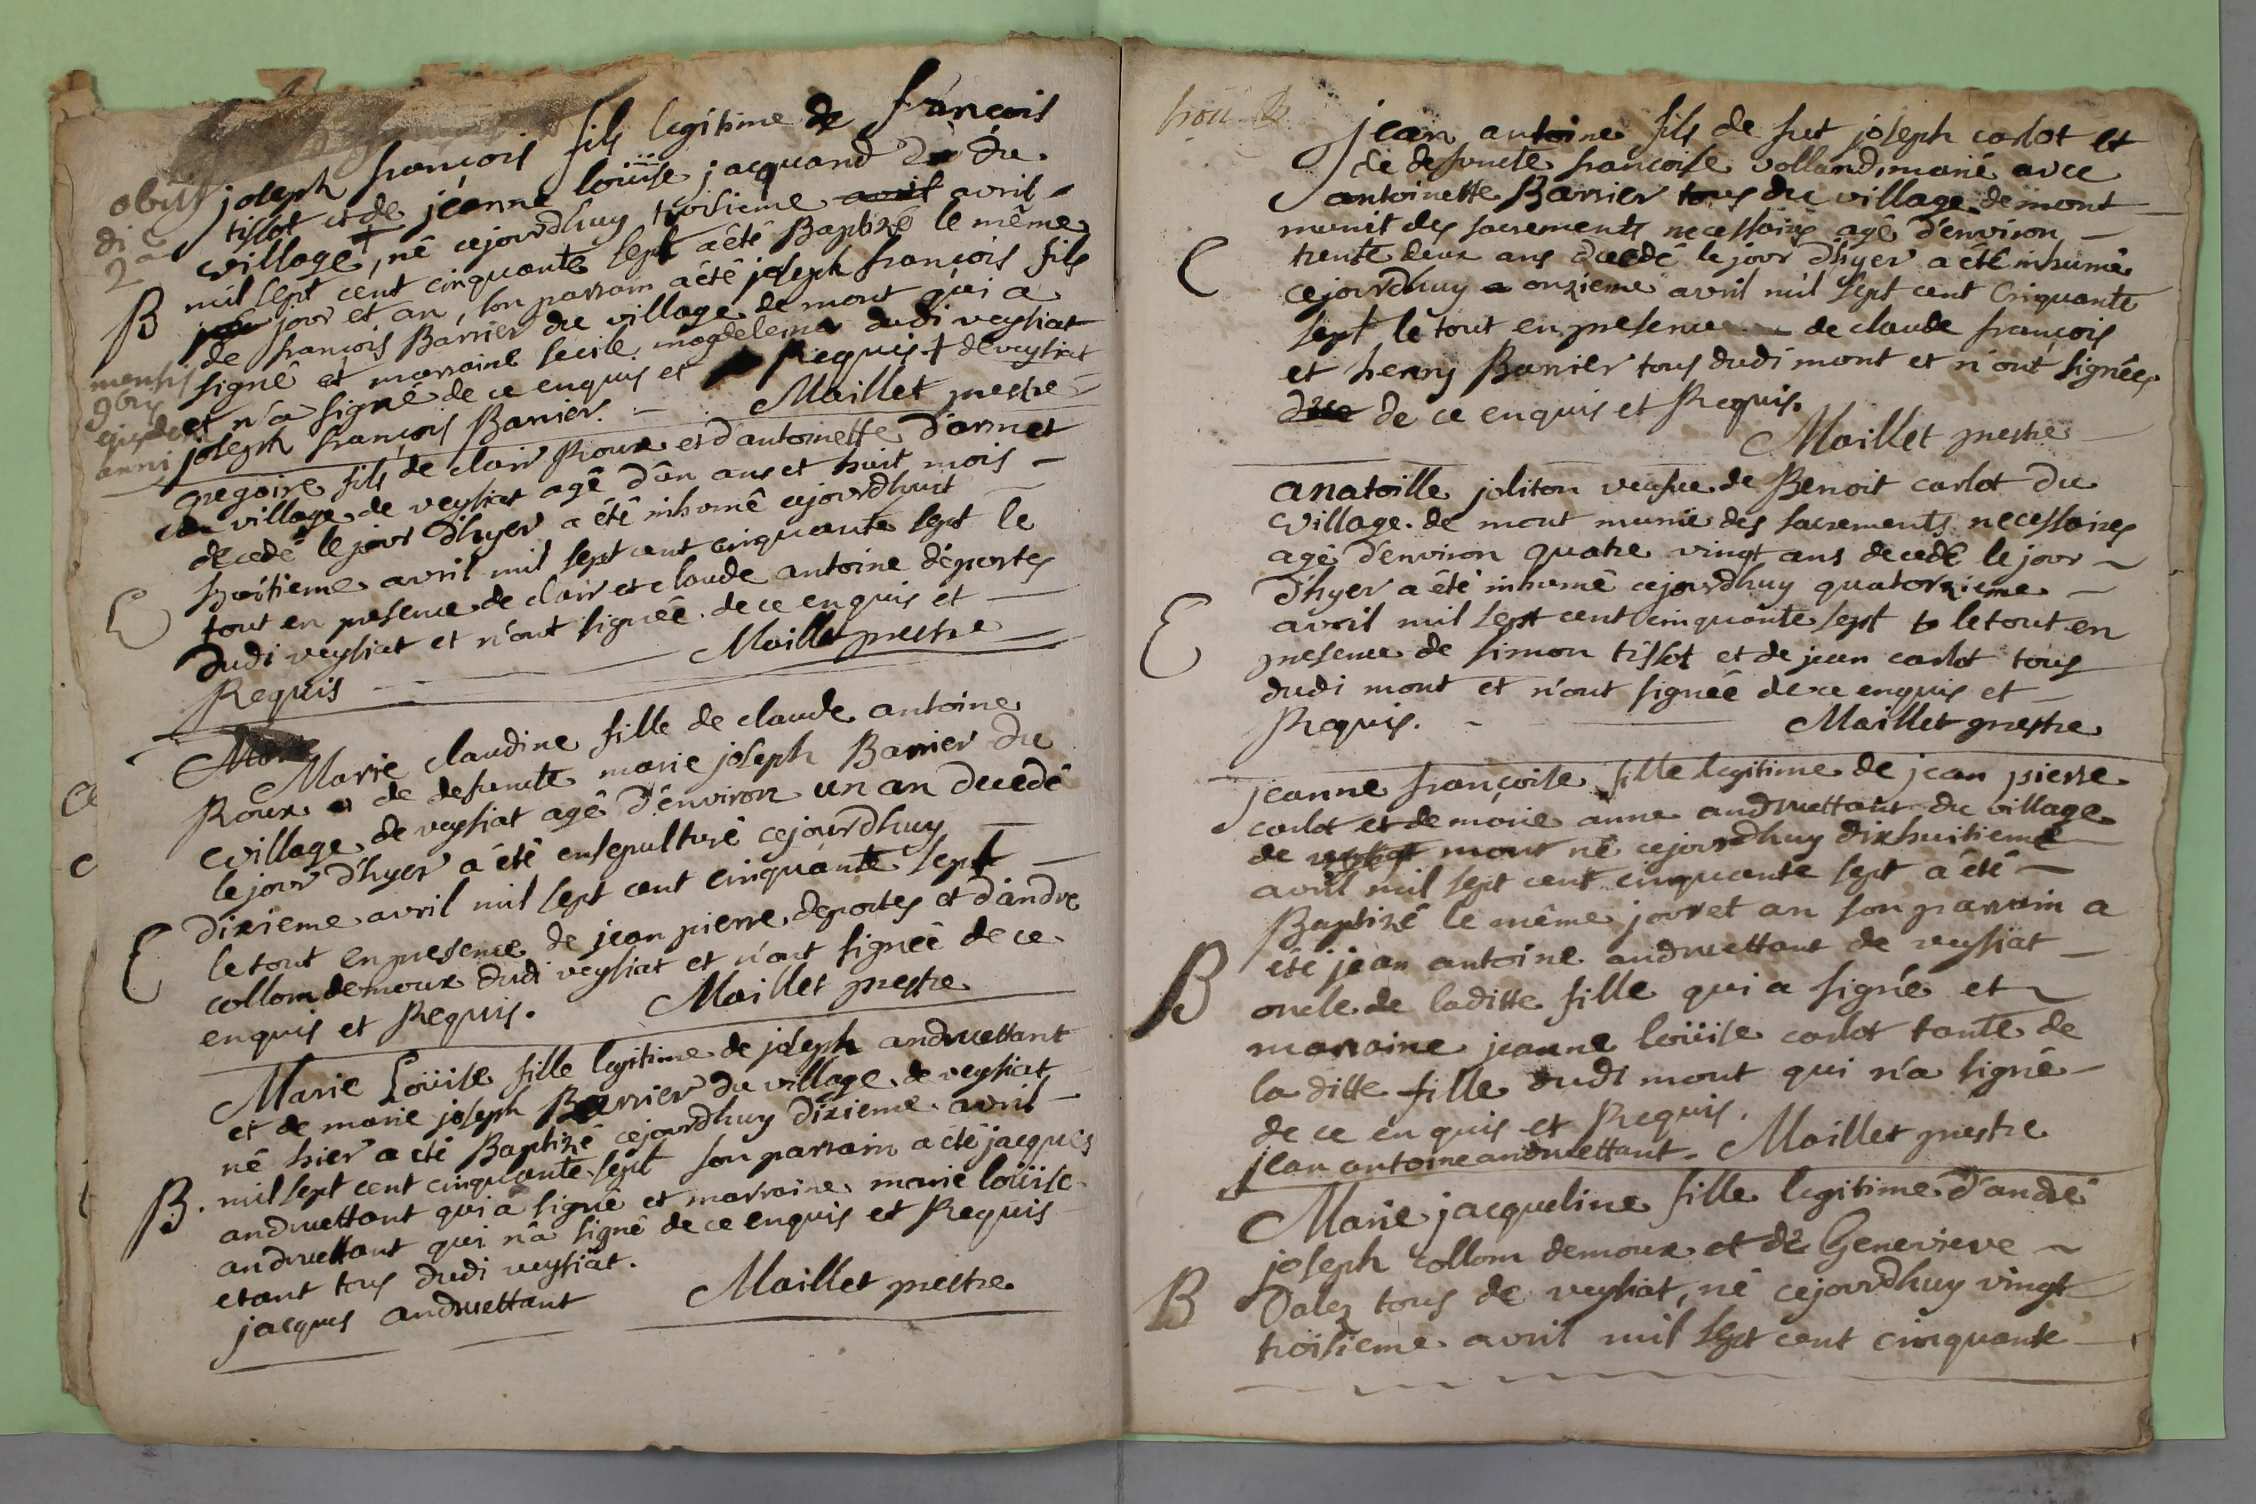 joseph françois fils legitime de françois
tissot et de jeanne loüise jacquand du
village +, né cejourdhuy troisieme avril avril
mil sept cent cinquante sept a été Baptizé le même
jour et an, son parrain a été joseph françois fils
de françois Barrier du village de mont qui a
signé et marraine secile magdeleine dudi veysiat
et n'a signé de ce enquis et Requis + de veysiat
joseph françois Barrier. Maillet prestre
obiit
di a
2a
B
mensis
9bris
ejusdem
anni
gregoire fils de clair Roux et d'antoinette d'armet
du village de veysiat agé d'un ans et huit mois
decedé le jour d'hyer a été inhumé cejourdhuit
huitieme avril mil sept cent cinquante sept le
tout en presence de clair et claude antoine déportes
dudi veysiat et n'ont signéé de ce enquis et
Requis Maillet prestre
E
Marie
Marie claudine fille de claude antoine
Roux et de defuncte marie joseph Barrier du
village de veysiat agé d'environ un an decedé
le jour d'hyer a été ensepulturé cejourdhuy
dixieme avril mil sept cent cinquante sept
le tout en presence de jean pierre deportes et d'andre
collom demoux dudi veysiat et n'ont signéé de ce
enquis et Requis. Maillet prestre
E
Marie Loüise fille legitime de joseph andruettant
et de marie joseph Barrier du village de veysiat
né hier a été Baptizé cejourdhuy dixieme avril
mil sept cent cinquante sept son parrain a été jacques
andruettant qui a signé et marraine marie loüise
andruettant qui n'a signé de ce enquis et Requis
etant tous dudi veysiat.
jacques andruettant Maillet prestre
B.
jean antoine fils de fut joseph carlot et
de defuncte francoise volland, marié avec
antoinette Barrier tous du village de mont
munit des sacrements necessaires agé d'environ
trente deux ans decedé le jour d'hyer a été inhumé
cejourdhuy a onzieme avril mil sept cent Cinquante
sept le tout en presence de claude françois
et henry Barrier tous dudi mont et n'ont signéés
de ce enquis et Requis.
Maillet prestre
E
anatoille joliton veufue de Benoit carlot du
village de mont munie des sacrements necessaires
agé d'environ quatre vingt ans decedé le jour
d'hyer a été inhumé cejourdhuy quatorzieme
avril mil sept cent cinquante sept le tout en
presence de simon tissot et de jean carlot tous
dudi mont et n'ont signéé de ce enquis et
Requis. Maillet prestre
E
jeanne françoise fille legitime de jean pierre
carlot et de marie anne andruettant du village
de veysiat mont né cejourdhuy dixhuitieme
avril mil sept cent cinquante sept a été
Baptizé le même jour et an son parrain a
été jean antoine andruettant de veysiat
oncle de laditte fille qui a signé et
marraine jeanne loüise carlot tante de
la ditte fille dudi mont qui n'a signé
de ce enquis et Requis.
jean antoine andruettant. Maillet prestre
B
Marie jacqueline fille legitime d'andré
joseph collom demoux et de Genevieve
Dalez tous de veysiat, né cejourdhuy vingt
troisieme avril mil sept cent cinquante
B